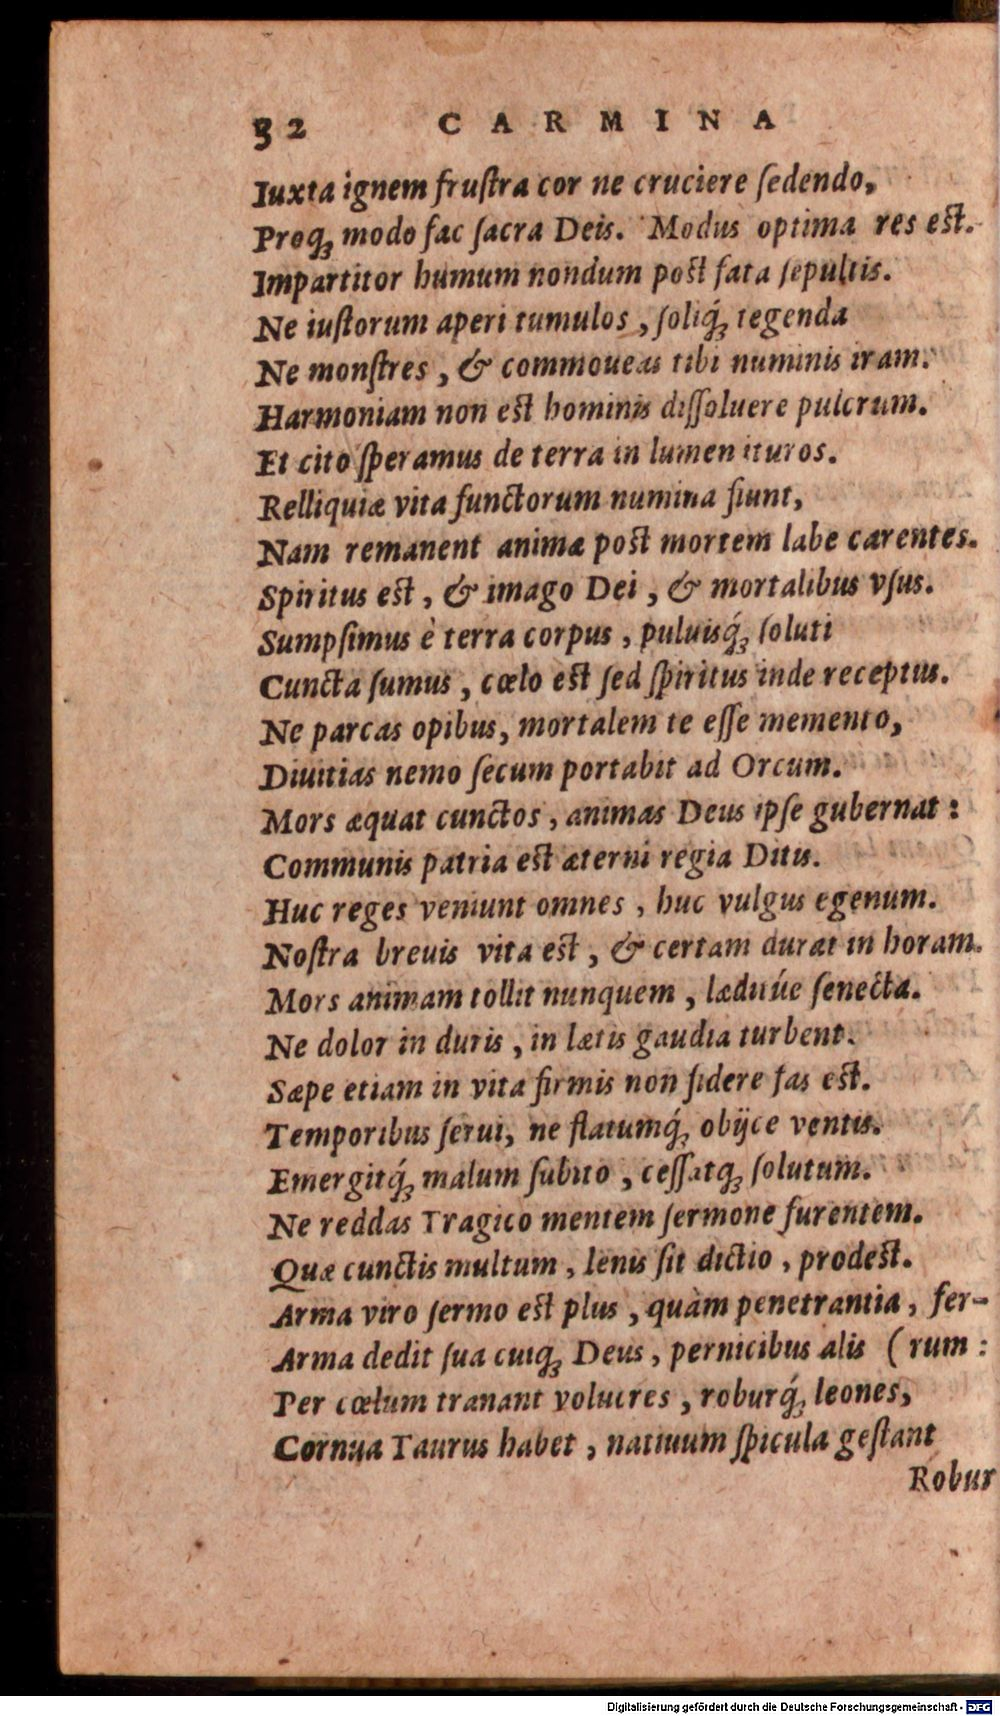 32 CARMINA
Iuxta ignem fruſtra cor ne cruciere ſedendo,
Proq́ꝫ modo fac ſacra Deis. Modus optima res eſt.
Impartitor humum nondum poſt fata ſepultis.
Ne iuſtorum aperi tumulos, ſoliq́ꝫ tegenda
Ne monſtres, & commoueas tibi numinis iram.
Harmoniam non eſt hominis diſſoluere pulcrum.
Et cito ſperamus de terra in lumen ituros.
Relliquiæ vita functorum numina fiunt,
Nam remanent animæ poſt mortem labe carentes.
Spiritus eſt, & imago Dei, & mortalibus vſus.
Sumpſimus è terra corpus, puluisq́ꝫ ſoluti
Cuncta ſumus, cœlo eſt ſed ſpiritus inde receptus.
Ne parcas opibus, mortalem te eſſe memento,
Diuitias nemo ſecum portabit ad Orcum.
Mors æquat cunctos, animas Deus ipſe gubernat:
Communis patria eſt æterni regia Ditis.
Huc reges veniunt omnes, huc vulgus egenum.
Noſtra breuis vita eſt, & certam durat in horam.
Mors animam tollit nunquem, læditúe ſenecta.
Ne dolor in duris, in lætis gaudia turbent.
Sæpe etiam in vita firmis non fidere fas eſt.
Temporibus ſerui, ne flatumq́ꝫ obijce ventis.
Emergitq́ꝫ malum ſubito, ceſſatqꝫ ſolutum.
Ne reddas Tragico mentem ſermone furentem.
Quæ cunctis multum, lenis ſit dictio, prodeſt.
Arma viro ſermo eſt plus, quàm penetrantia, fer-
Arma dedit ſua cuiqꝫ Deus, pernicibus alis (rum:
Per cœlum tranant volucres, roburq́ꝫ leones,
Cornua Taurus habet, natiuum ſpicula geſtant
Robur
Digitalisierung gefördert durch die Deutsche Forschungsgemeinschaft - DFG